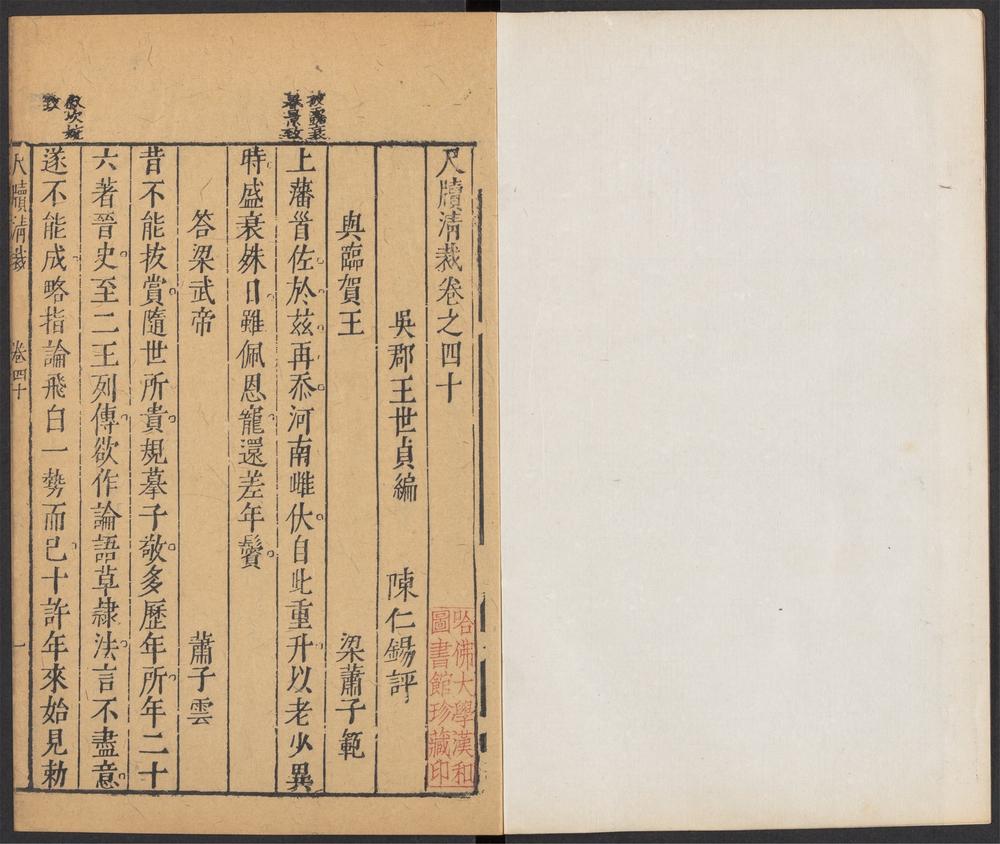 尺牘淸裁卷之四十
吳郡王世貞編　陳仁錫評
與臨賀王　梁蕭子範
上藩首佐於茲再忝河南雌伏自此重升以老少異
時盛衰殊日雖佩恩寵還差年鬢
答梁武帝　蕭子雲
昔不能拔賞隨世所貴規摹子敬多歷年所年二十
六著晉史至二王列傳欲作論語草隸法言不盡意
遂不能成略指論飛白一勢而已十許年來始見勅
尺牘淸裁　卷四十　一
哈佛大學漢和
圖書館珍藏印